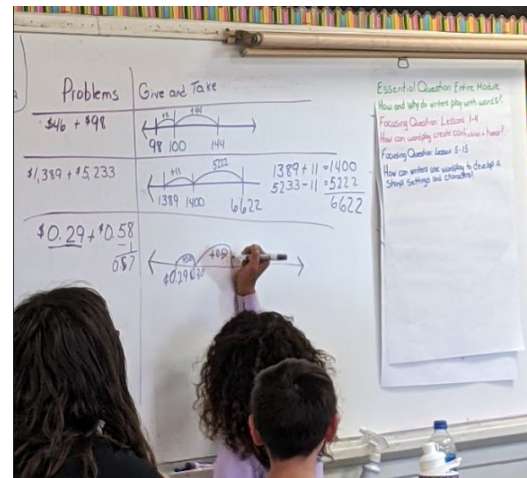 Problems
Give and Take
$46 + $98
98 100 144
$1,389 + $5,233
+11
5222
1389 1400 6622
1389 + 11 = 1400
5233 - 11 = 5222
6622
$0.29 + $0.58
- 1
0.57
$0.29
Essential Question Entire Module
How and Why do writers play with words?
Focusing Question: Lessons 1-4
How can wordplay create confusion + humor?
Focusing Question: Lesson 5-15
How can writers use wordplay to develop a
Story's Settings and characters?